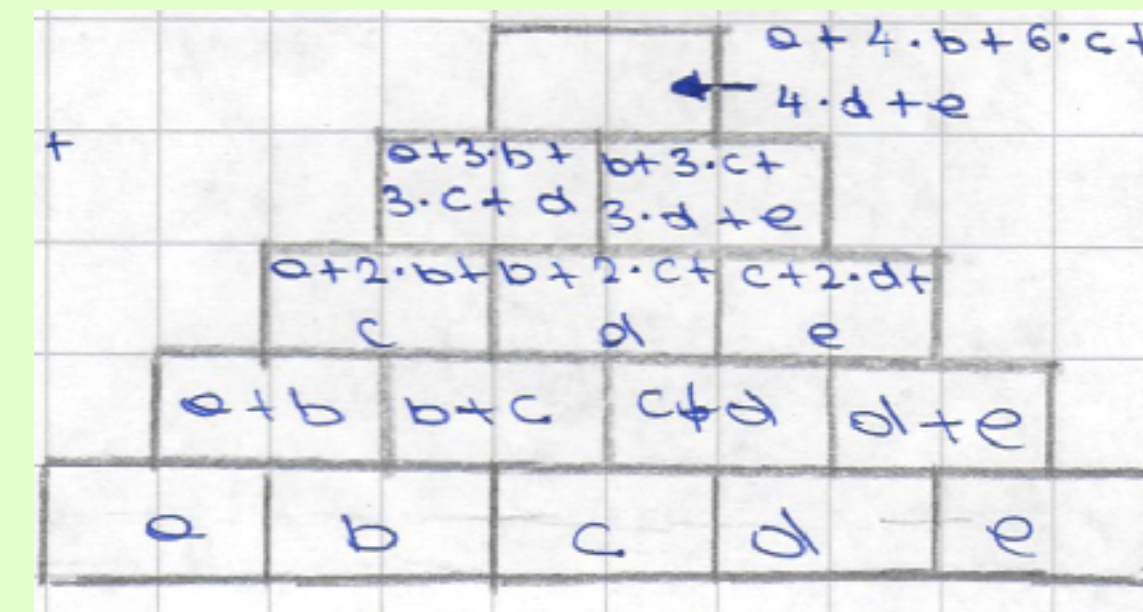 a + 4 · b + 6 · c +
4 · d + e
+
a+3·b+ b+3·c+
3·c+ d 3·d+e
a+2·b+ b+2·c+ c+2·d+
c d e
a+b b+c c+d d+e
a b c d e